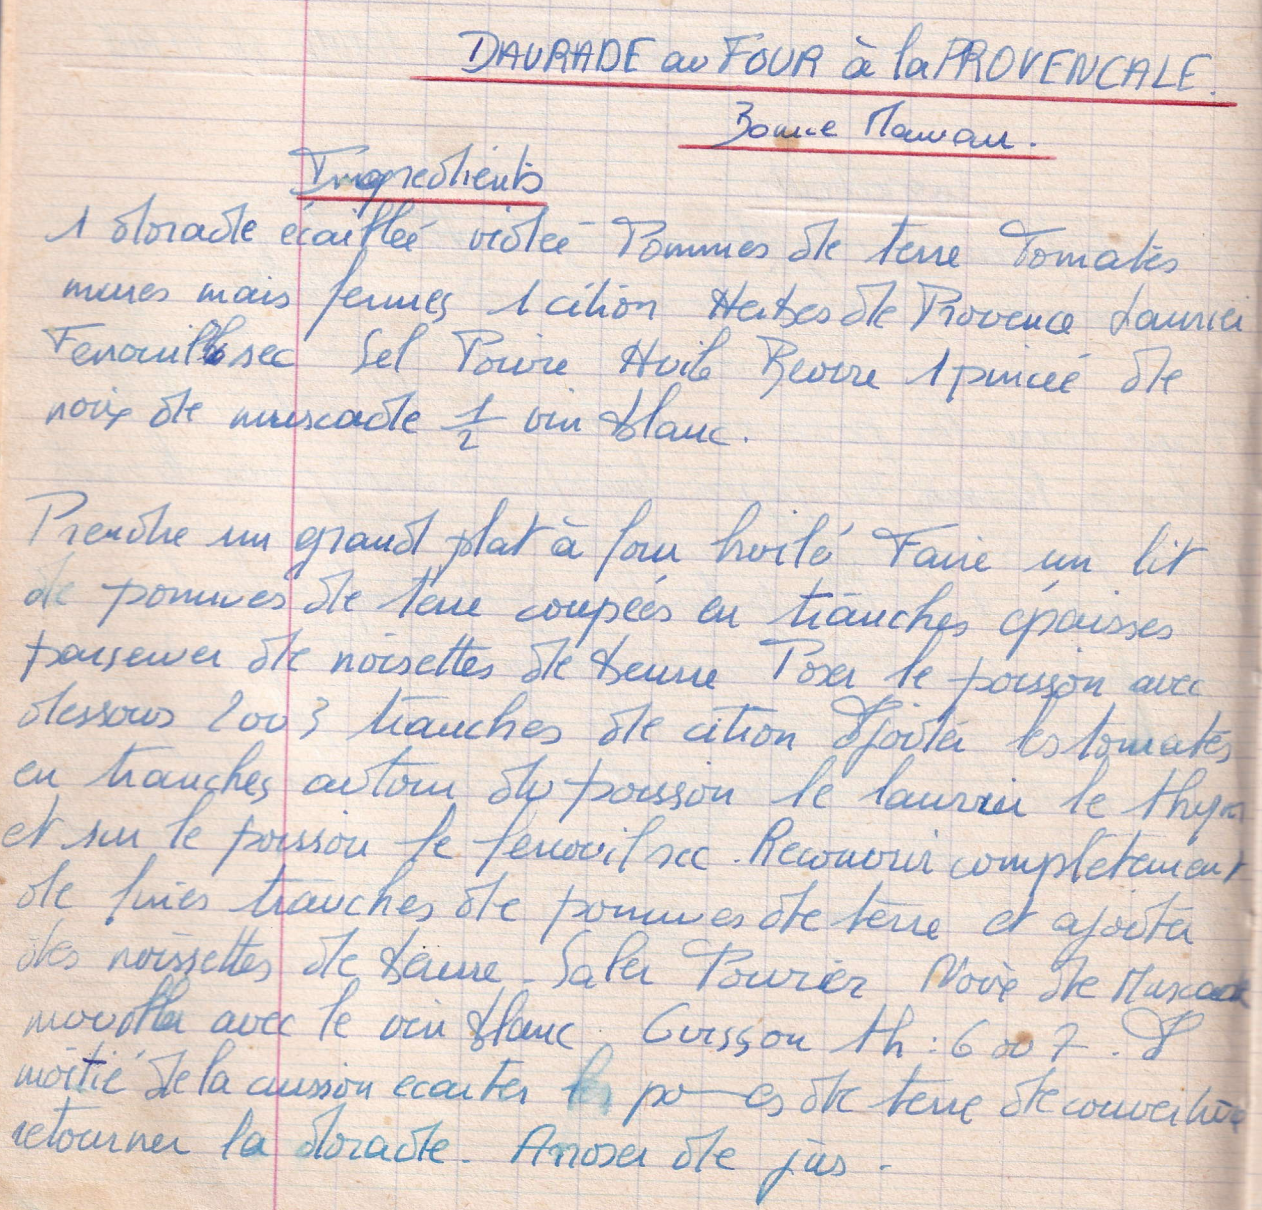 DAURADE au FOUR à la PROVENCALE.
Bonne Maman.
Ingredients
1 dorade écaillée vidée Pommes de terre Tomates
mures mais fermes 1 citron Herbes de Provence Laurier
Fenouil sec Sel Poivre Huile Beurre 1 pincée de
noix de muscade 1/2 vin blanc.
Prendre un grand plat à four huilé Faire un lit
de pommes de terre coupées en tranches épaisses
parsemer de noisettes de beurre Poser le poisson avec
dessous 2 ou 3 tranches de citron Ajouter les tomates
en tranches autour du poisson le laurier le thym
et sur le poisson le fenouil sec. Recouvrir complètement
de fines tranches de pommes de terre et ajouter
des noissettes de beurre. Saler Poivrer Noix de Muscade
mouiller avec le vin blanc. Cuisson th : 6 ou 7. A
moitié de la cuisson ecarter les pommes de terre de couverture
retourner la dorade. Arroser de jus.